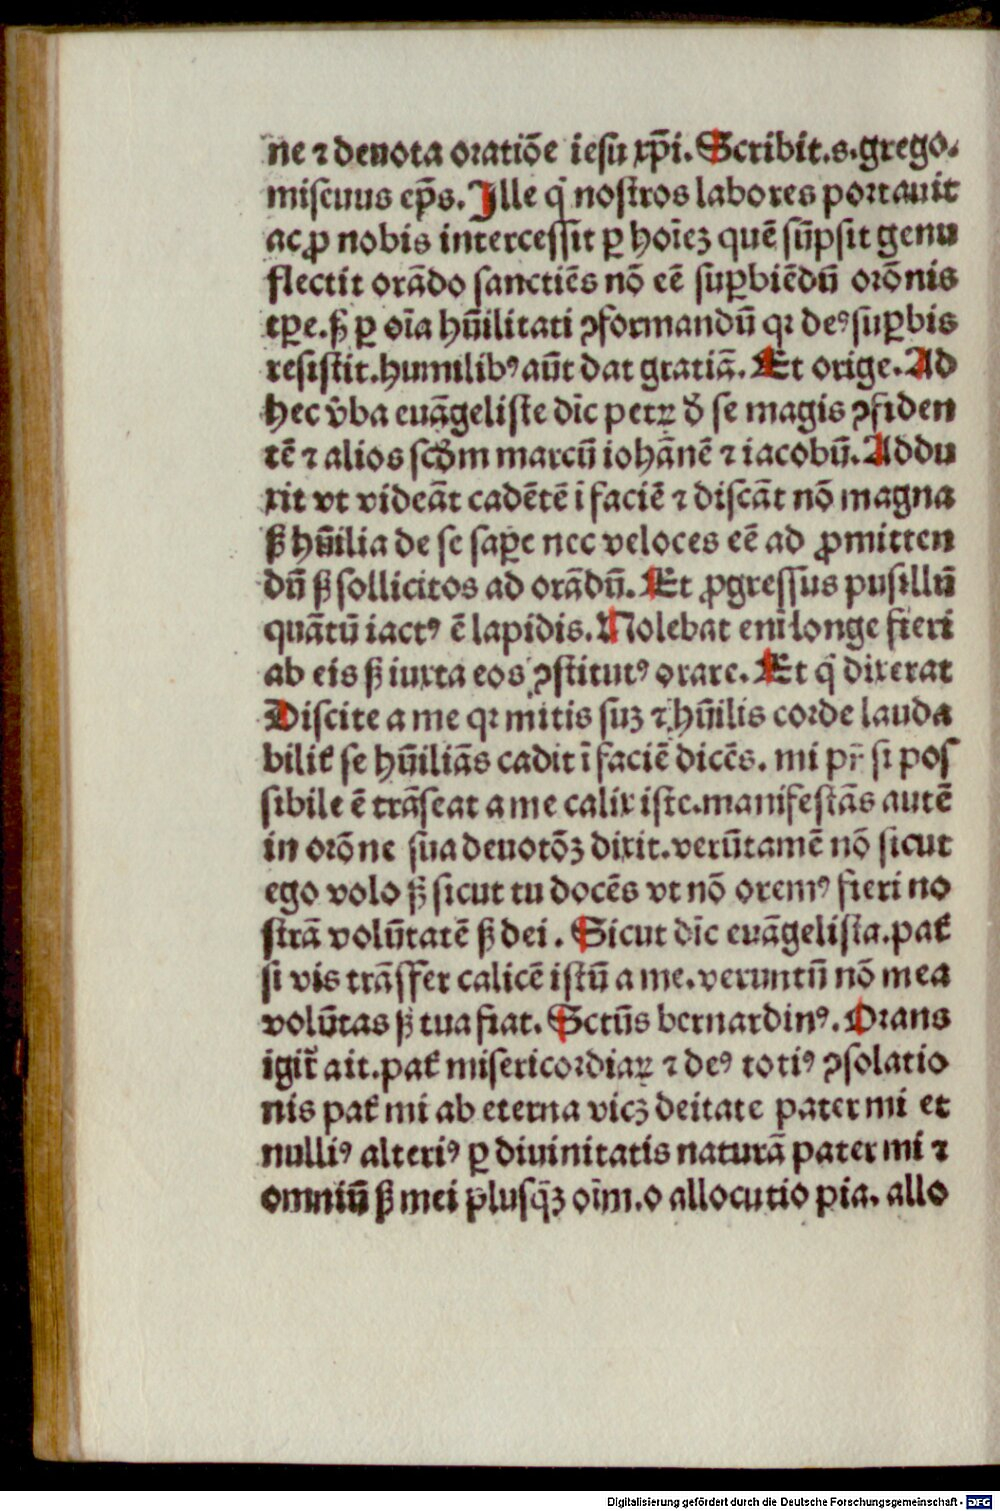 ne ⁊ deuota oratiōe iesu xp̄i. Scribit.s.grego.
miscuus ep̄s. Ille q̄ nostros labores portauit
ac ꝓ nobis intercessit ꝑ hoīeꝫ quē sūpsit genu
flectit orādo sanctiēs nō eē suꝑbiēdū orōnis
tꝑe.ſꝫ ꝑ oīa hūilitati ꝯformandū qꝛ deꝰ suꝑbis
resistit.humilibꝰ aūt dat gratiā. Et orige. Ad
hec v̄ba euāgeliste dīc petꝝ d̄ se magis ꝯfiden
tē ⁊ alios scd̄m marcū iohānē ⁊ iacobū. Addu
xit vt videāt cadētē ī faciē ⁊ discāt nō magna
ſꝫ hūilia de se saꝑe nec veloces eē ad ꝓmitten
dū ſꝫ sollicitos ad orādū. Et ꝓgressus pusillū
quātū iactꝰ ē lapidis. Nolebat eni longe fieri
ab eis ſꝫ iuxta eos ꝯstitutꝰ orare. Et q̄ dixerat
Discite a me qꝛ mitis suꝫ ⁊ hūilis corde lauda
bilit̄ se hūiliās cadit ī faciē dicēs. mi pr̄ si pos
sibile ē trāseat a me calix iste.manifestās autē
in orōne sua deuotōꝫ dixit.verūtamē nō sicut
ego volo ſꝫ sicut tu docēs vt nō oremꝰ fieri no
strā volūtatē ſꝫ dei. Sicut dīc euāgelista.pat̄
si vis trāsfer calicē istū a me.veruntū nō mea
volūtas ſꝫ tua fiat. Sctūs bernardinꝰ. Orans
igit̄ ait.pat̄ misericordiaꝝ ⁊ deꝰ totiꝰ ꝯsolatio
nis pat̄ mi ab eterna vicꝫ deitate pater mi et
nulliꝰ alteriꝰ ꝑ diuinitatis naturā pater mi ⁊
omniū ſꝫ mei plusq̄ꝫ oīm.o allocutio pia. allo
Digitalisierung gefördert durch die Deutsche Forschungsgemeinschaft - DFG